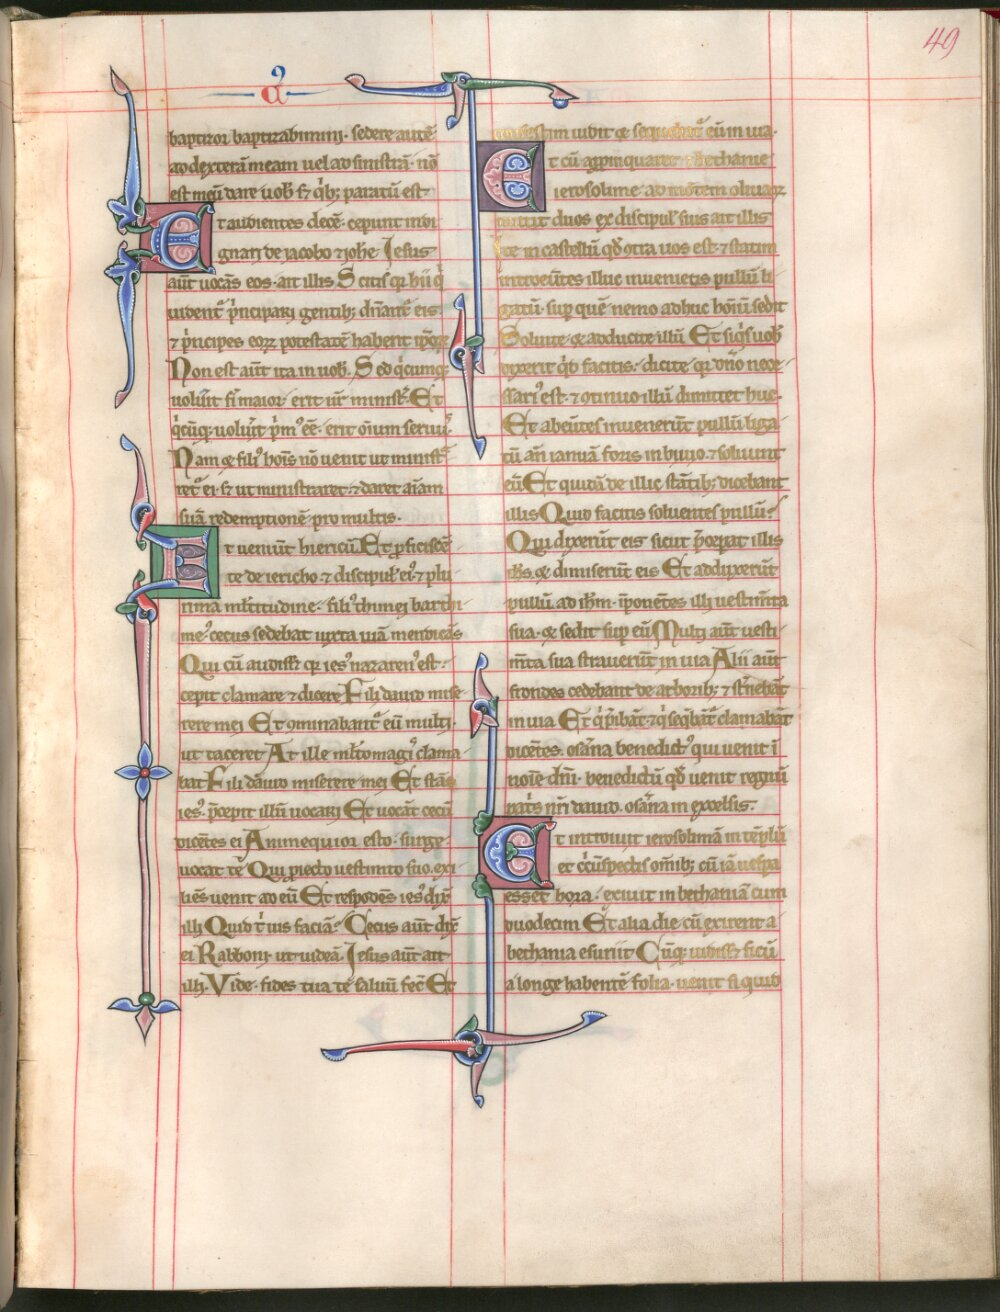 49
a⁹
baptizor baptizabimini· sedere autē
ad dexterā meam uel ad sinistrā nō
est meū dare uob̄ s; q̇b; paratū est·
Et audientes decē· cepunt indi
gnari de iacobo ⁊ ioh̄e· Iesus
aūt uocās eos· ait illis Scitis qr̄ hii q̇
uident᷑ p̄ncipari gentib; dn̄ant᷑ eis·
⁊ p̄ncipes eoꝝ potestatē habent ip̄oꝝ
Non est aūt ita in uob̄· Sed q̇cumq;
uolūit fi maior· erit ur̄ minist᷑· Et
q̇cūq; uolūit p̄m⁹ ēē· erit oīum seruu᷒
Nam ⁊ fili⁹ hoīs nō uenit ut minist᷑
ret᷑ ei· s; ut ministraret· ⁊ daret aīam
suā redemptionē pro multis·
Et ueniūt hiericū Et p̄ficiscē
te de iericho· ⁊ discipul᷒ ei⁹· ⁊ plu
rima ml̄titudine· fili⁹ thimei barthi
me⁹ cecus sedebat iuxta uiā mendicās
Qui cū audiss᷑ qr̄ ies⁹ nazaren⁹ est·
cepit clamare ⁊ dicere Fili dauid mise
rere mei Et ꝯminabant᷑ eū multi·
ut taceret At ille ml̄to magi᷒ clama
bat Fili dauid miserere mei Et stās
ies⁹· p̄cepit illū uocari Et uocāt cecū
dicētes ei Animequior esto· surge
uocat te Qui p̄iecto uestimto suo· exi
liēs uenit ad eū Et respōdēs ies⁹ dix̄
illi Quid t̄ uis faciā· Cecus aūt dix̄
ei Rabboni· ut uideā Iesus aūt ait
illi· Vide· fides tua te saluū fec̄ Et
confestim uidit ⁊ sequebat᷑ eū in uia·
Et cū app̄inquaret ⁊ bethanie
ierosolime· ad mōtem oliuaꝝ
mittit duos ex discipul᷒ suis ait illis
Ite in castellū qd̄ ꝯtra uos est· ⁊ statim
introeūtes illuc inuenietis pullū li
gatū· sup quē nemo adhuc hom̄ū sedit
Soluite ⁊ adducite illū Et siq̇s uob̄
dixerit q̇d facitis· dicite· qr̄ dn̄o nece
ssari⁹ est· ⁊ ꝯtinuo illū dimittet huc·
Et abeūtes inuenerūt pullū liga
tū an̄ ianuā foris in biuio· ⁊ soluunt
eū Et quidā de illic stātib; dicebant
illis Quid facitis soluentes pullū?
Qui dixerūt eis sicut p̄cepat illis
ih̄s· ⁊ dimiserūt eis Et adduxerūt
pullū ad ih̄m· ip̄onētes illi uestim̄ta
sua· ⁊ sedit sup eū Multi aūt uesti
m̄ta sua strauerūt in uia Alii aūt
frondes cedebant de arborib; ⁊ st̄nebāt
in uia Et q̇ p̄ibāt ⁊ q̇ seq̄bāt᷑ clamabāt
dicētes· osāna benedict⁹ qui uenit ī
noīe dn̄i· benedictū qd̄ uenit regnū
pat̄s nr̄i dauid· osāna in excelsis·
Et introiuit ierosolimā in tēplū
et c̄cūspectis om̄ib; cū iā uespa
esset hora· exiuit in bethaniā cum
duodecim Et alia die cū exirent a
bethania esuriit Cūq; uidiss᷑ ficū
a longe habentē folia· uenit si quid